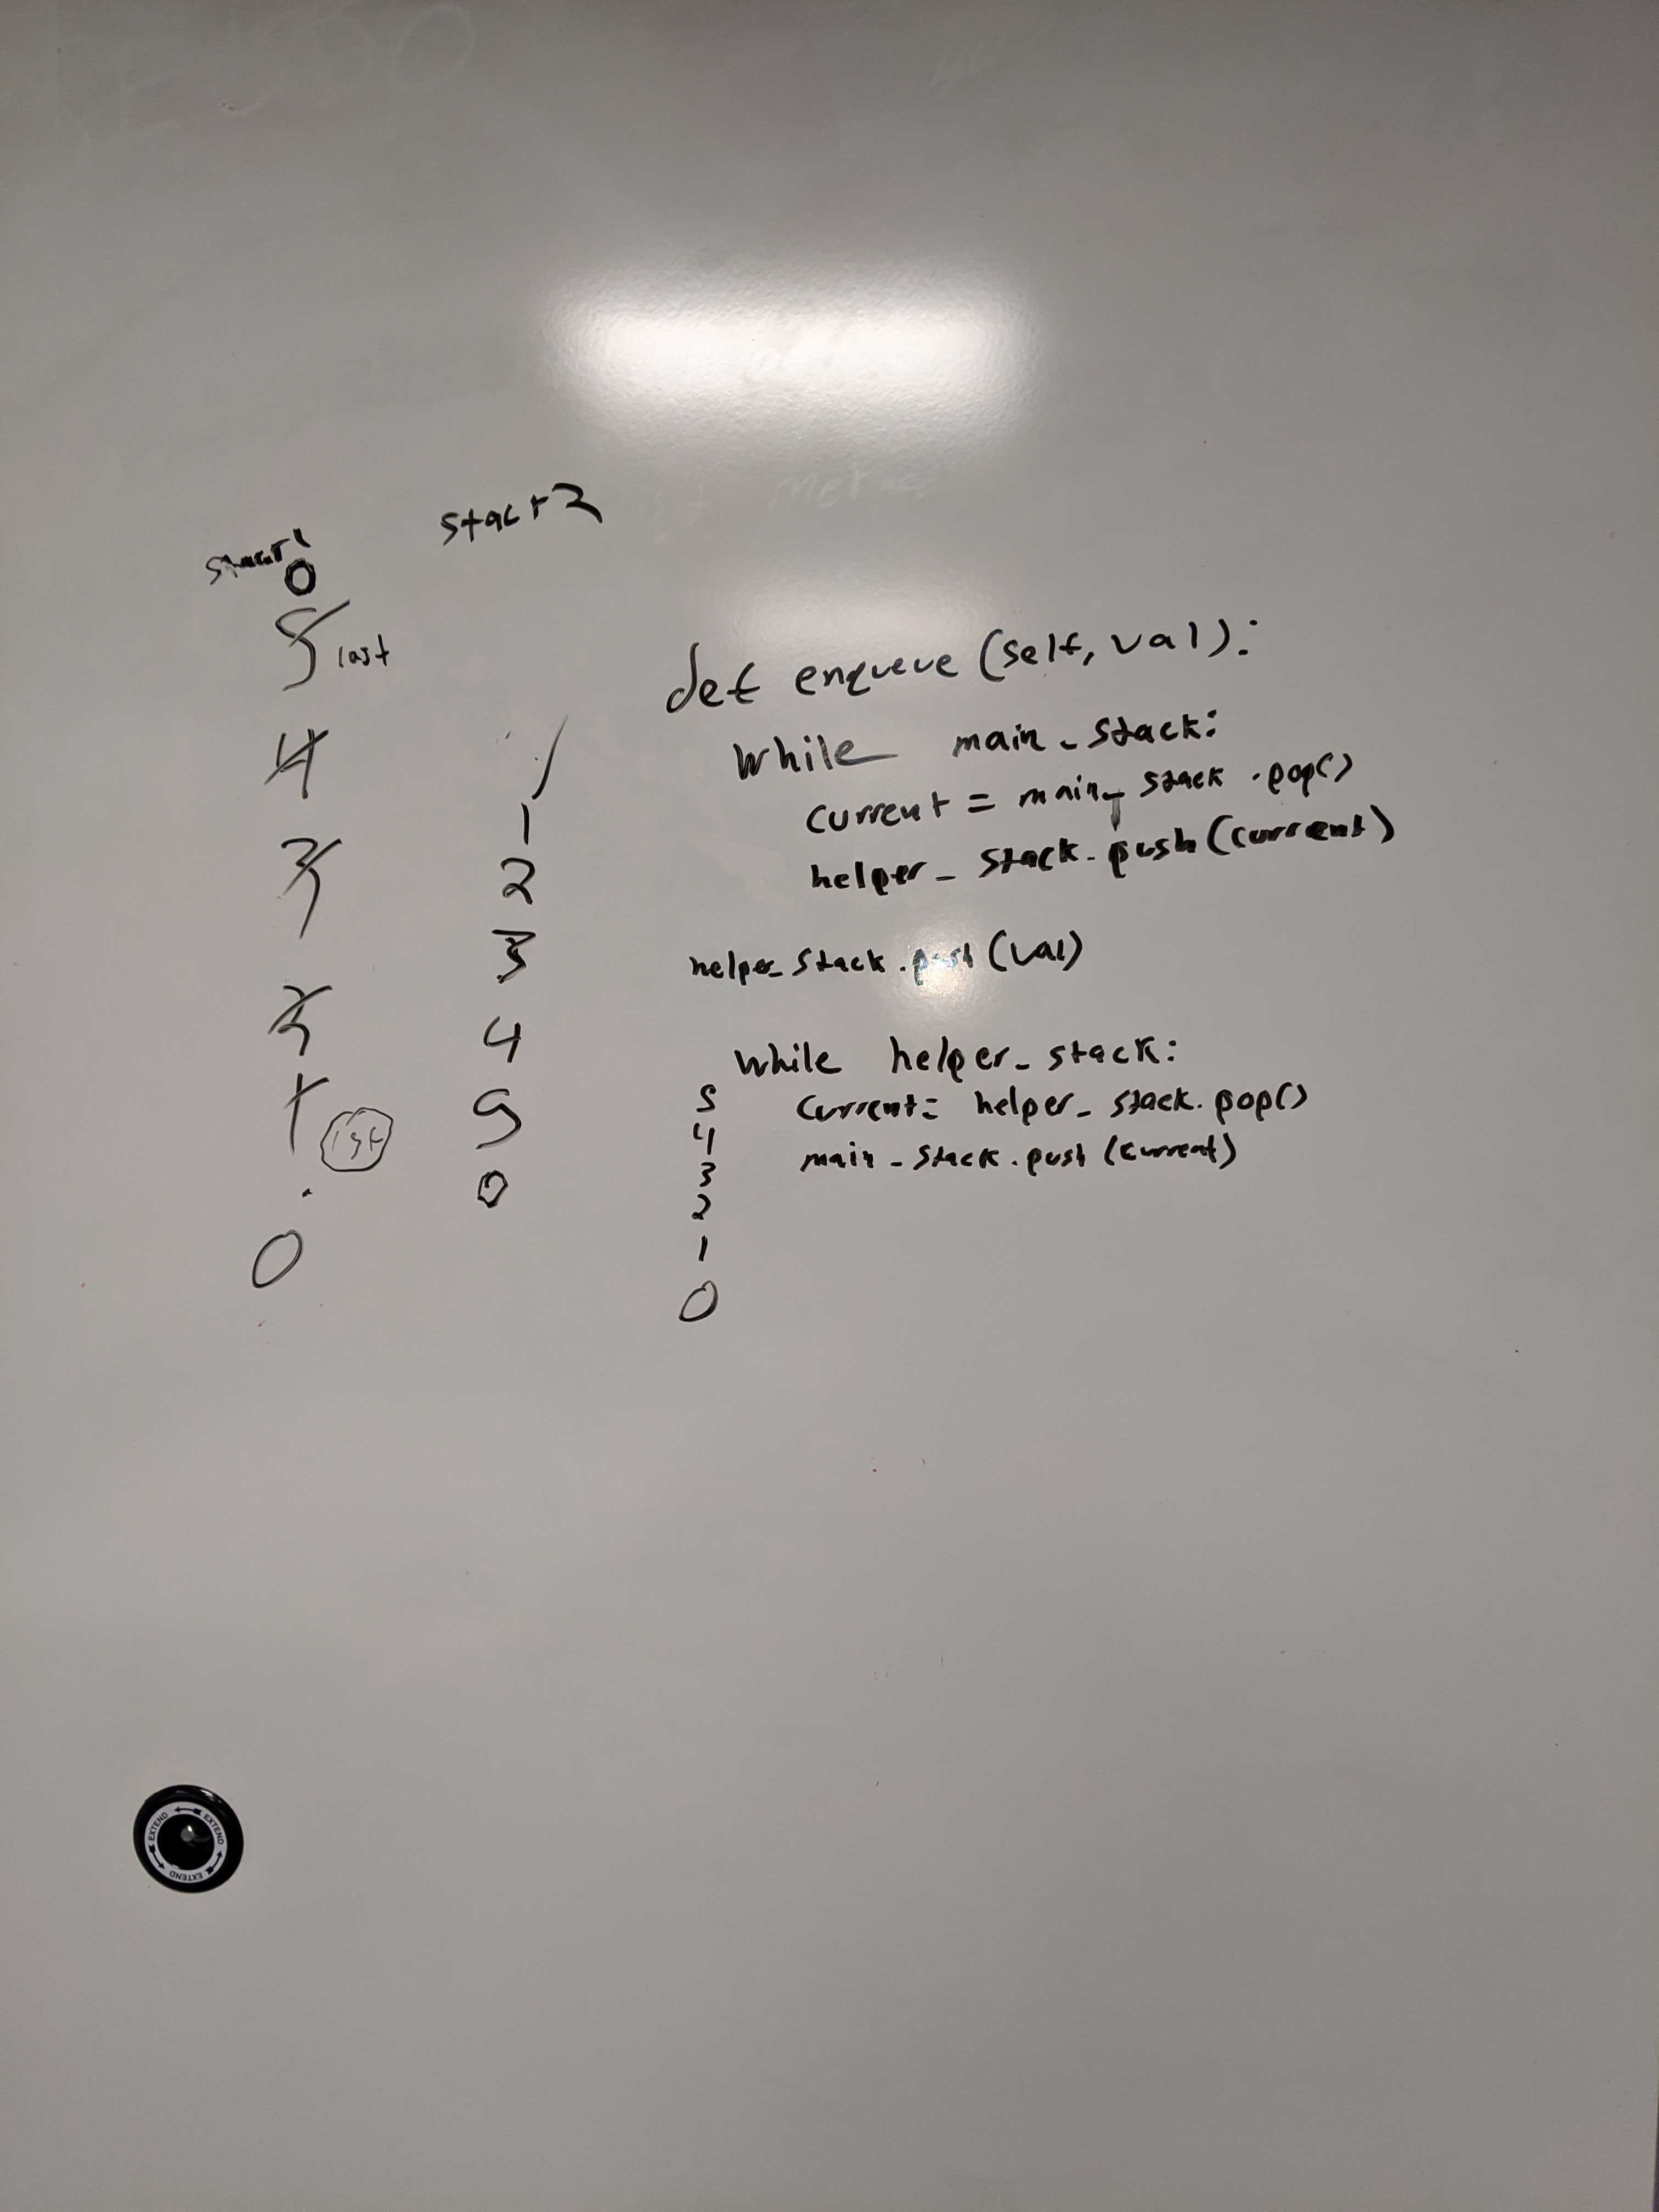 stack1
stack2
0
5 last
4
3
2
1 1st
0
1
2
3
4
5
0
def enqueue (self, val):
while main_stack:
current = main_stack.pop()
helper_stack.push(current)
helper_stack.push(val)
while helper_stack:
current= helper_stack.pop()
main_stack.push(current)
5
4
3
2
1
0
EXTEND EXTEND EXTEND EXTEND